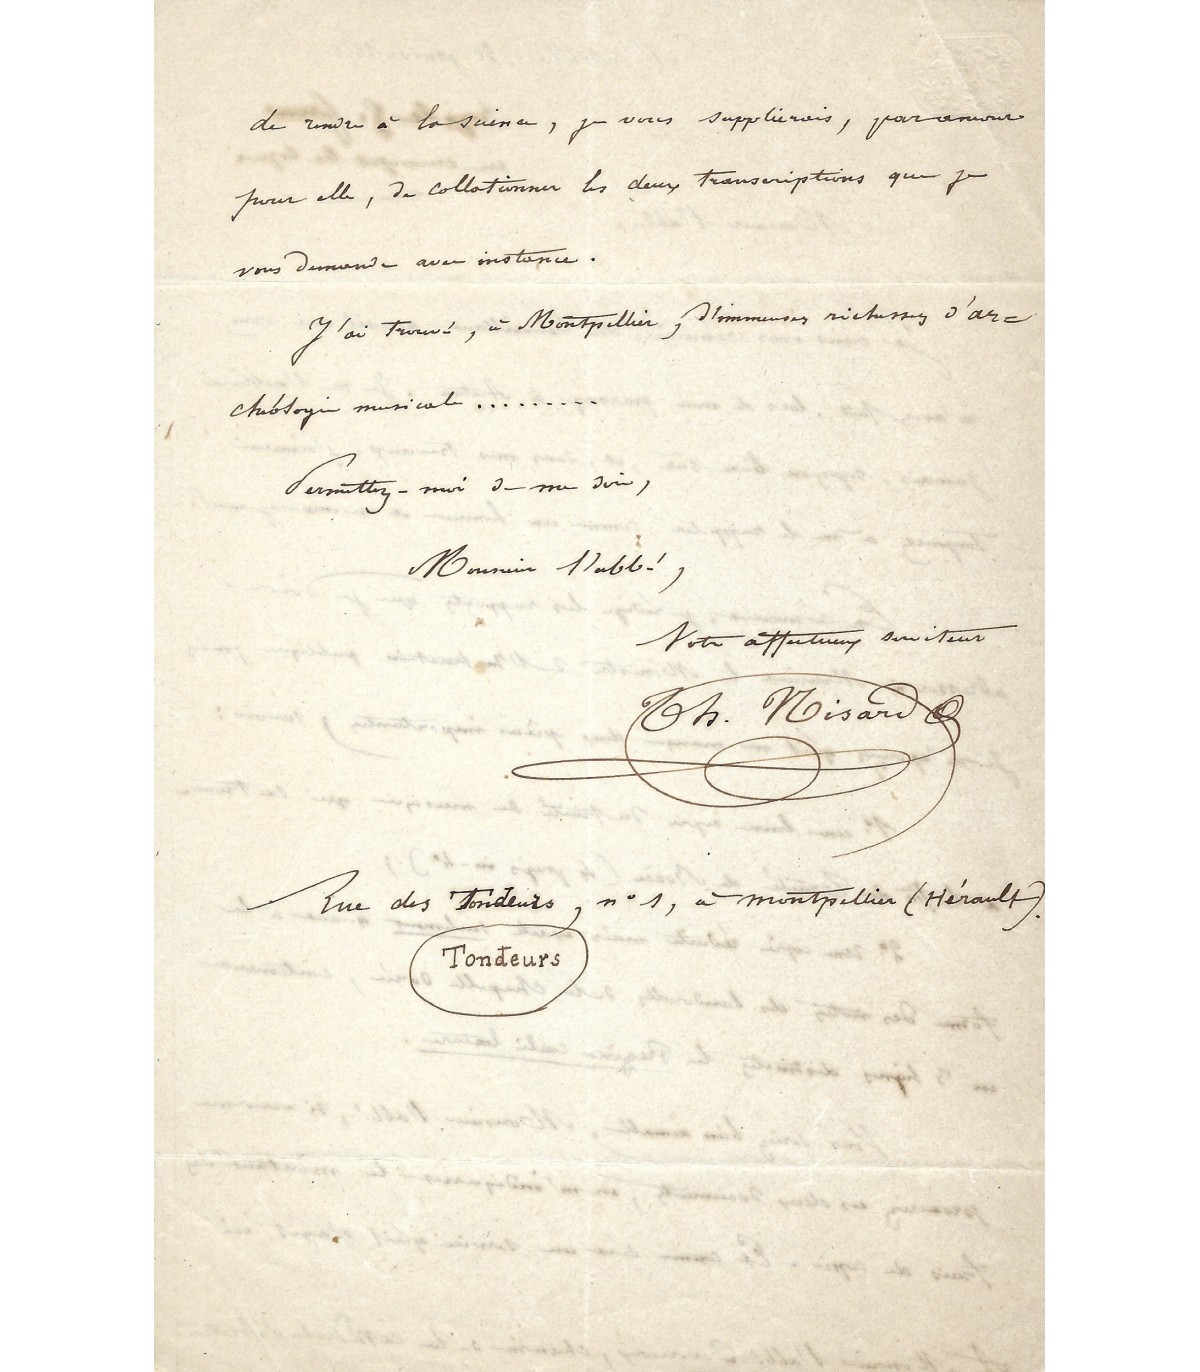 de rendre à la science, je vous supplierais, par amour
pour elle, de collationner les deux transcriptions que je
vous demande avec instance.
J'ai trouvé, à Montpellier, d'immenses richesses d'ar=
chéologie musicale .........
Permettez-moi de me dire,
Monsieur l'abbé,
Votre affectueux serviteur
Th. Nisard
Rue des Tondeurs, n° 1, à Montpellier (Hérault).
Tondeurs